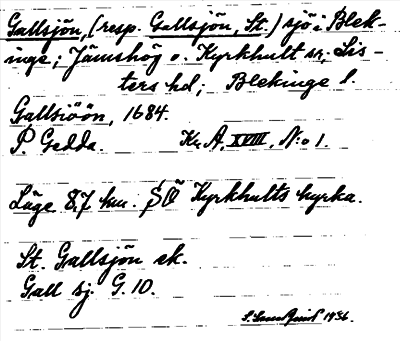 Gallsjön, (resp. Gallsjön, St.) sjö i Blek-
inge; Jämshög o. Kyrkhult sr; Lis-
ters hd; Blekinge l.
Gallsiöön, 1684.
P. Gedda. Kr. A, XVIII, N:o 1.
Läge 8,7 km. SÖ Kyrkhults kyrka.
St. Gallsjön ek.
Gall sj. G. 10.
1936.